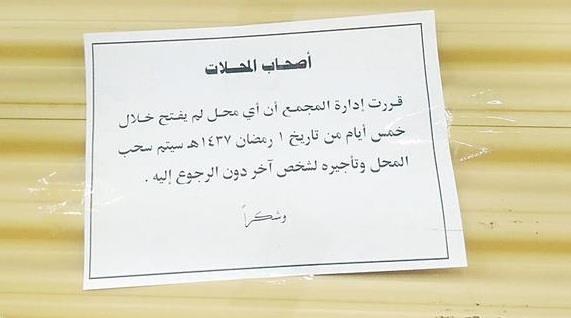 أصحاب المحلات
قررت إدارة المجمع أن أي محل لم يفتح خلال
خمس أيام من تاريخ ١ رمضان ١٤٣٧هـ سيتم سحب
المحل وتأجيره لشخص آخر دون الرجوع إليه .
وشكراً